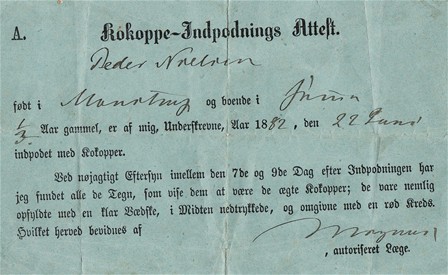 A. Kokoppe-Indpodnings Attest.
Peder Nielsen
født i Monstrup og boende i
1/3 Aar gammel, er af mig, Underskrevne, Aar 1882, den 22 Juni
indpodet med Kokopper.
Ved nøjagtigt Eftersyn imellem den 7de og 9de Dag efter Indpodningen har
jeg fundet alle de Tegn, som vise dem at være de ægte Kokopper; de vare nemlig
opfyldte med en klar Vædske, i Midten nedtrykkede, og omgivne med en rød Kreds.
Hvilket herved bevidnes af Magnus
, autoriseret Læge.